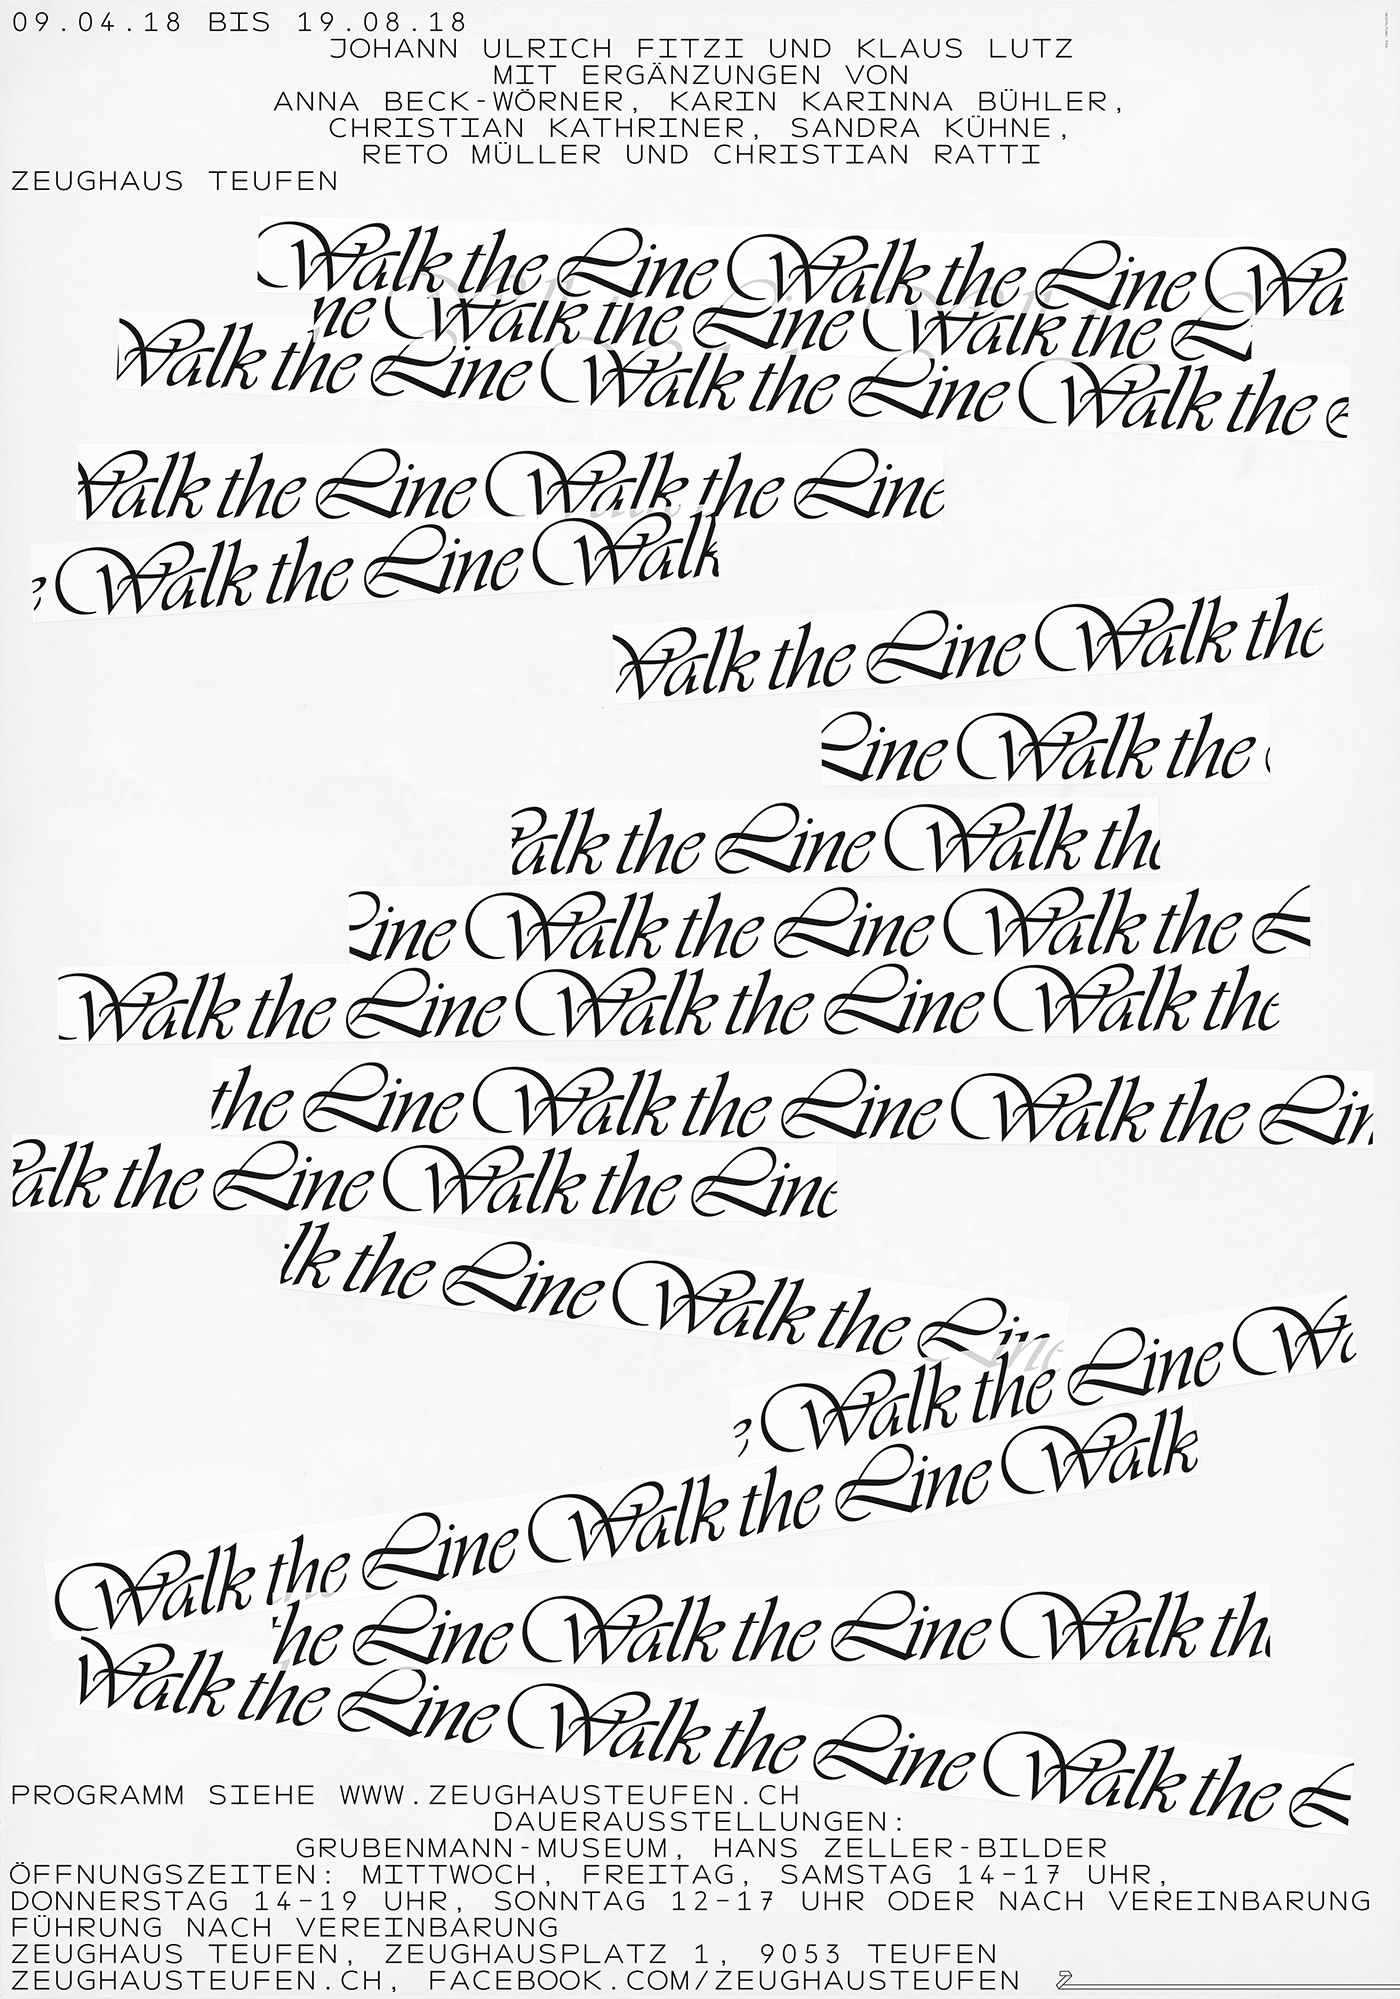 09.04.18 BIS 19.08.18
JOHANN ULRICH FITZI UND KLAUS LUTZ
MIT ERGÄNZUNGEN VON
ANNA BECK-WÖRNER, KARIN KARINNA BÜHLER,
CHRISTIAN KATHRINER, SANDRA KÜHNE,
RETO MÜLLER UND CHRISTIAN RATTI
ZEUGHAUS TEUFEN
Walk the Line Walk the Line Wa
ne Walk the Line Walk the L
Walk the Line Walk the Line Walk the L
Walk the Line Walk the Line
e Walk the Line Walk
Walk the Line Walk the
Line Walk the
alk the Line Walk the
Line Walk the Line Walk the L
Walk the Line Walk the Line Walk the
the Line Walk the Line Walk the Lin
alk the Line Walk the Line
lk the Line Walk the Line
e Walk the Line Wa
Walk the Line Walk the Line Walk
the Line Walk the Line Walk th
Walk the Line Walk the Line Walk the L
PROGRAMM SIEHE WWW.ZEUGHAUSTEUFEN.CH
DAUERAUSSTELLUNGEN:
GRUBENMANN-MUSEUM, HANS ZELLER-BILDER
ÖFFNUNGSZEITEN: MITTWOCH, FREITAG, SAMSTAG 14-17 UHR,
DONNERSTAG 14-19 UHR, SONNTAG 12-17 UHR ODER NACH VEREINBARUNG
FÜHRUNG NACH VEREINBARUNG
ZEUGHAUS TEUFEN, ZEUGHAUSPLATZ 1, 9053 TEUFEN
ZEUGHAUSTEUFEN.CH, FACEBOOK.COM/ZEUGHAUSTEUFEN